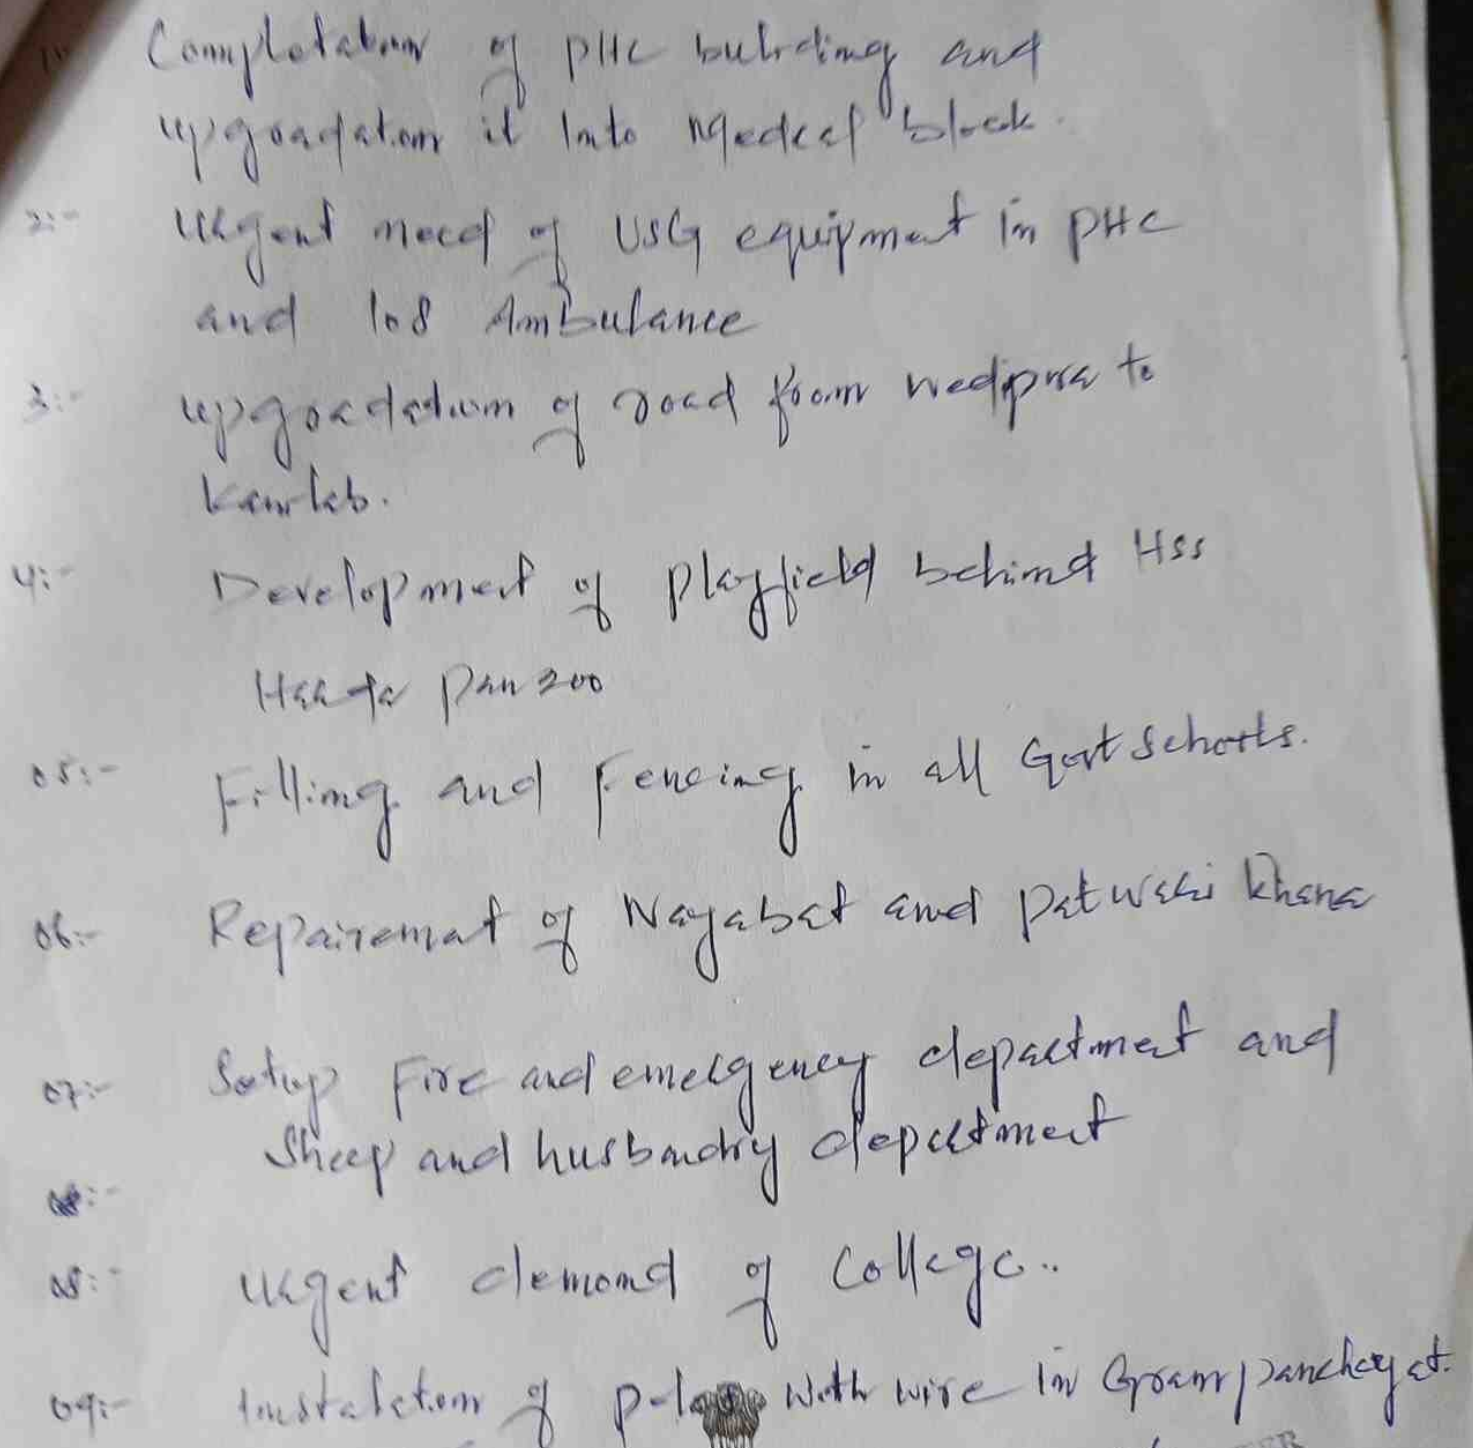 1:- Completation of PHC building and
upgradation it Into Medical block.
2:- Urgent need of USG equipment in PHC
and 108 Ambulance
3:- upgradation of road from to
4:- Development of Playfield behind HSS
Panzoo
05:- Filling and Fencing in all Govt Schools.
06:- Repairemat of Nayabat and patwari khana
07:- Setup Fire and emergency department and
Sheep and husbandry department
08:- Urgent demond of College..
09:- Instalation of with wire in Gram panchayat.